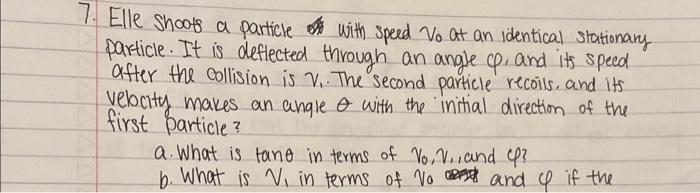 7. Elle shoots a particle with speed V₀ at an identical stationary
particle. It is deflected through an angle φ, and its speed
after the collision is V₁. The second particle recoils, and its
velocity makes an angle θ with the initial direction of the
first particle?
a. What is tanθ in terms of V₀, V₁, and φ?
b. What is V₁ in terms of V₀ and φ if the